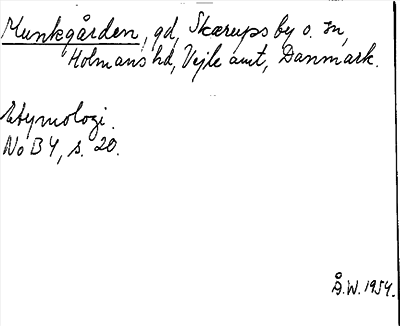 Munkgården, gd, Skærups by o. sn,
Holmans hd, Vejle amt, Danmark.
Etymologi.
NoB 4, s. 20.
Å.W. 1954.